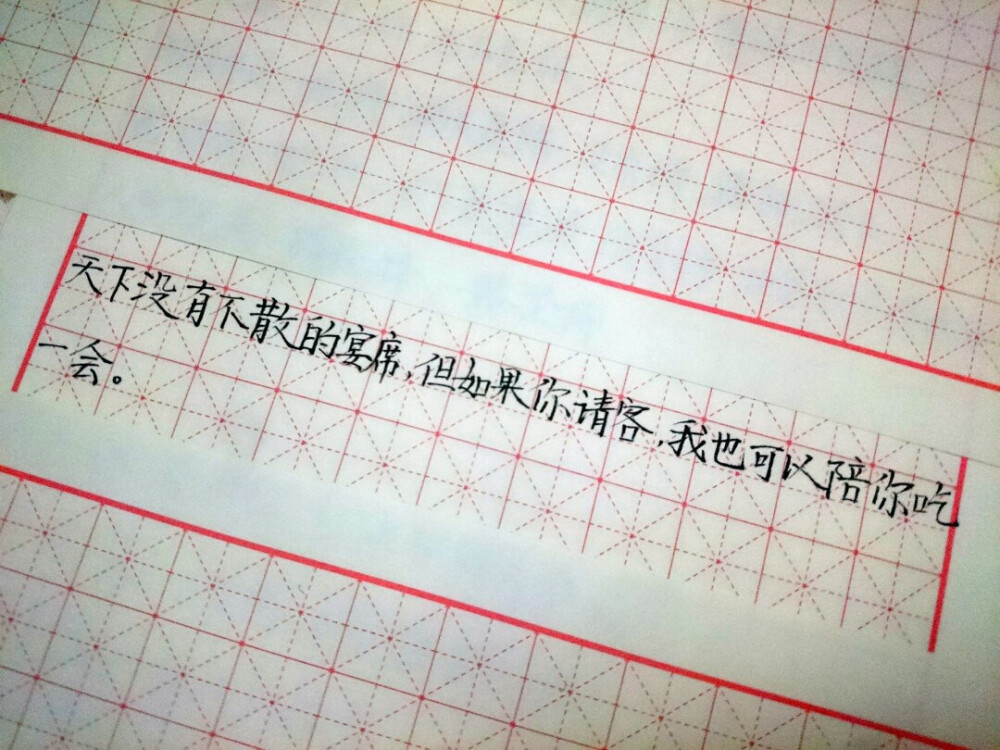 天下没有不散的宴席,但如果你请客,我也可以陪你吃
一会。